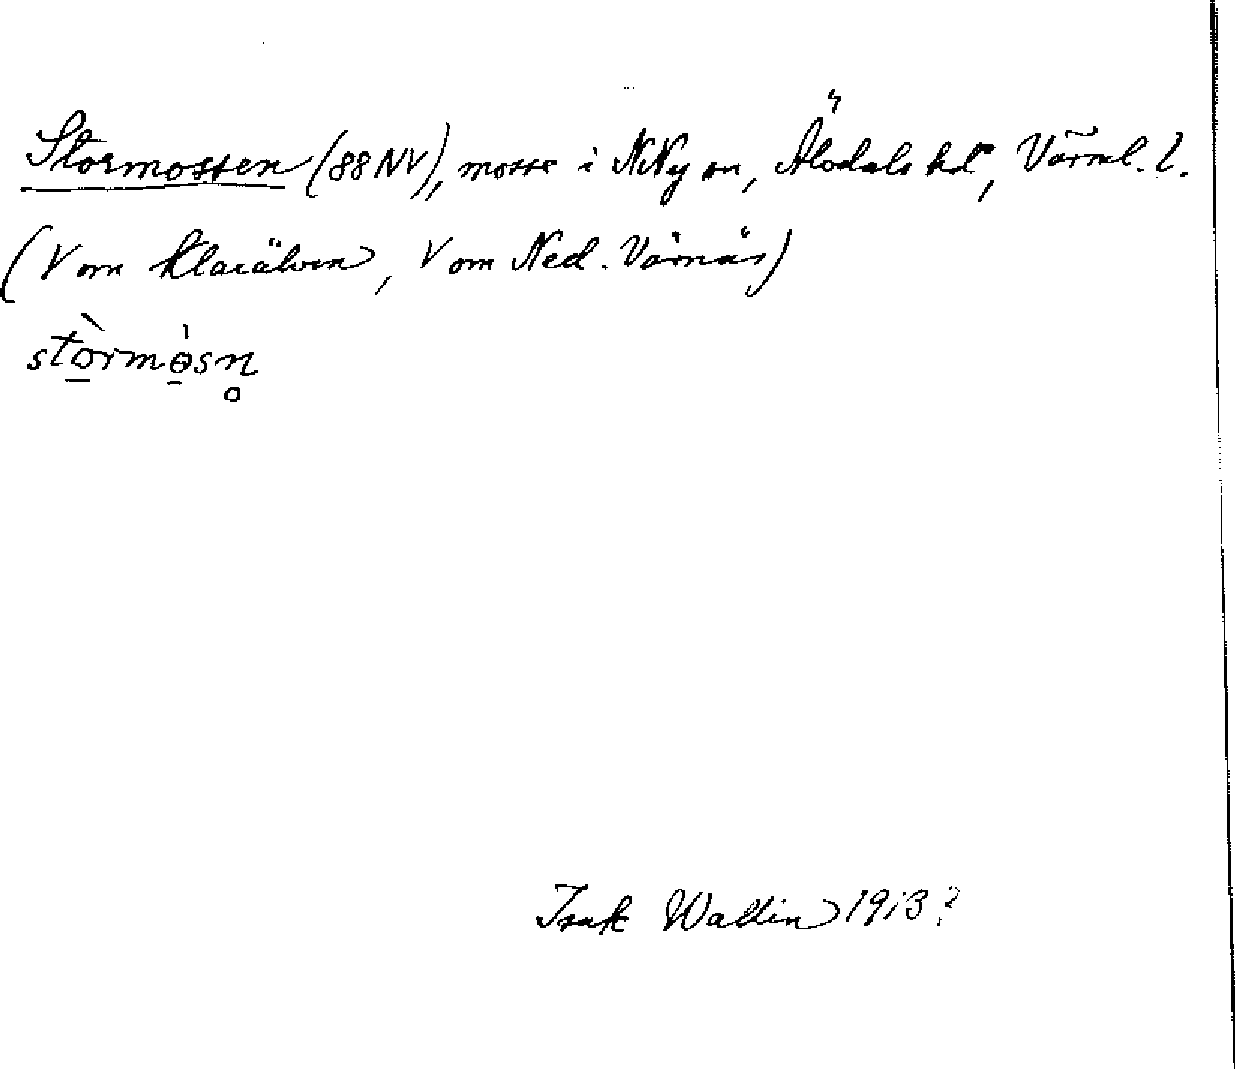 Stormossen (88NV), mosse i N Ny sn, Älvdals hd, Värml. l.
(V om Klarälven, V om Ned. Värnäs)
stòrmòsn̥
Isak Wallin 1913?